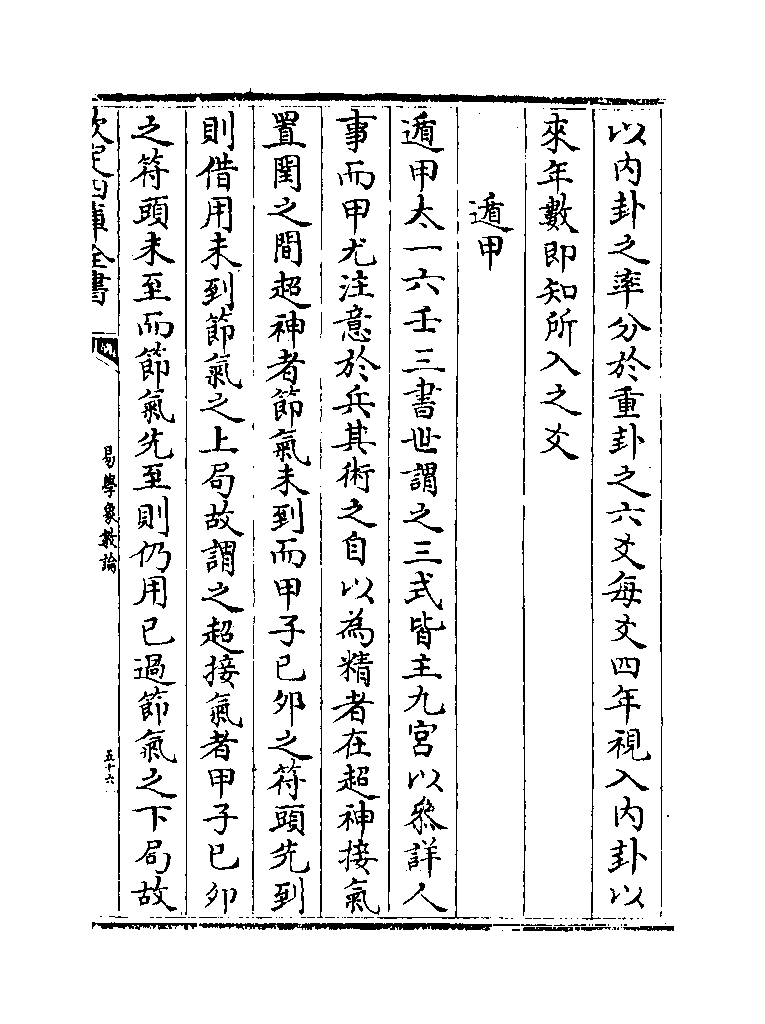 以内卦之率分於重卦之六爻每爻四年視入内卦以
來年數即知所入之爻
遁甲
遁甲太一六壬三書世謂之三式皆主九宮以叅詳人
事而甲尤注意於兵其術之自以為精者在超神接氣
置閏之間超神者節氣未到而甲子已夘之符頭先到
則借用未到節氣之上局故謂之超接氣者甲子已夘
之符頭未至而節氣先至則仍用已過節氣之下局故
欽定四庫全書
易學象數論
五十六